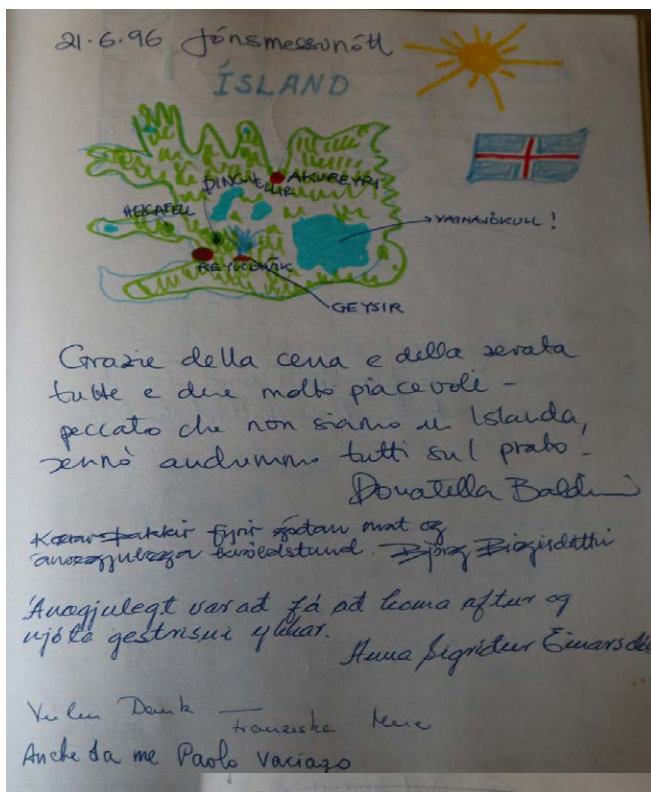 21.6.96 Jónsmessunótt
ÍSLAND
ÞINGVELLIR
AKUREYRI
HELGAFELL
VATNAJÖKULL!
REYKJAVÍK
GEYSIR
Grazie della cena e della serata
tutte e due molto piacevoli -
peccato che non siamo in Islanda,
sennò andremmo tutti sul prato -
Donatella
Kærar þakkir fyrir góðan mat og
ánægjulega kvöldstund. Björg
Ánægjulegt var að fá að koma aftur og
njóta gestrisni ykkar.
Anna Sigríður Einarsdó
Vielen Dank Franziska
Anche da me Paolo Vaciago